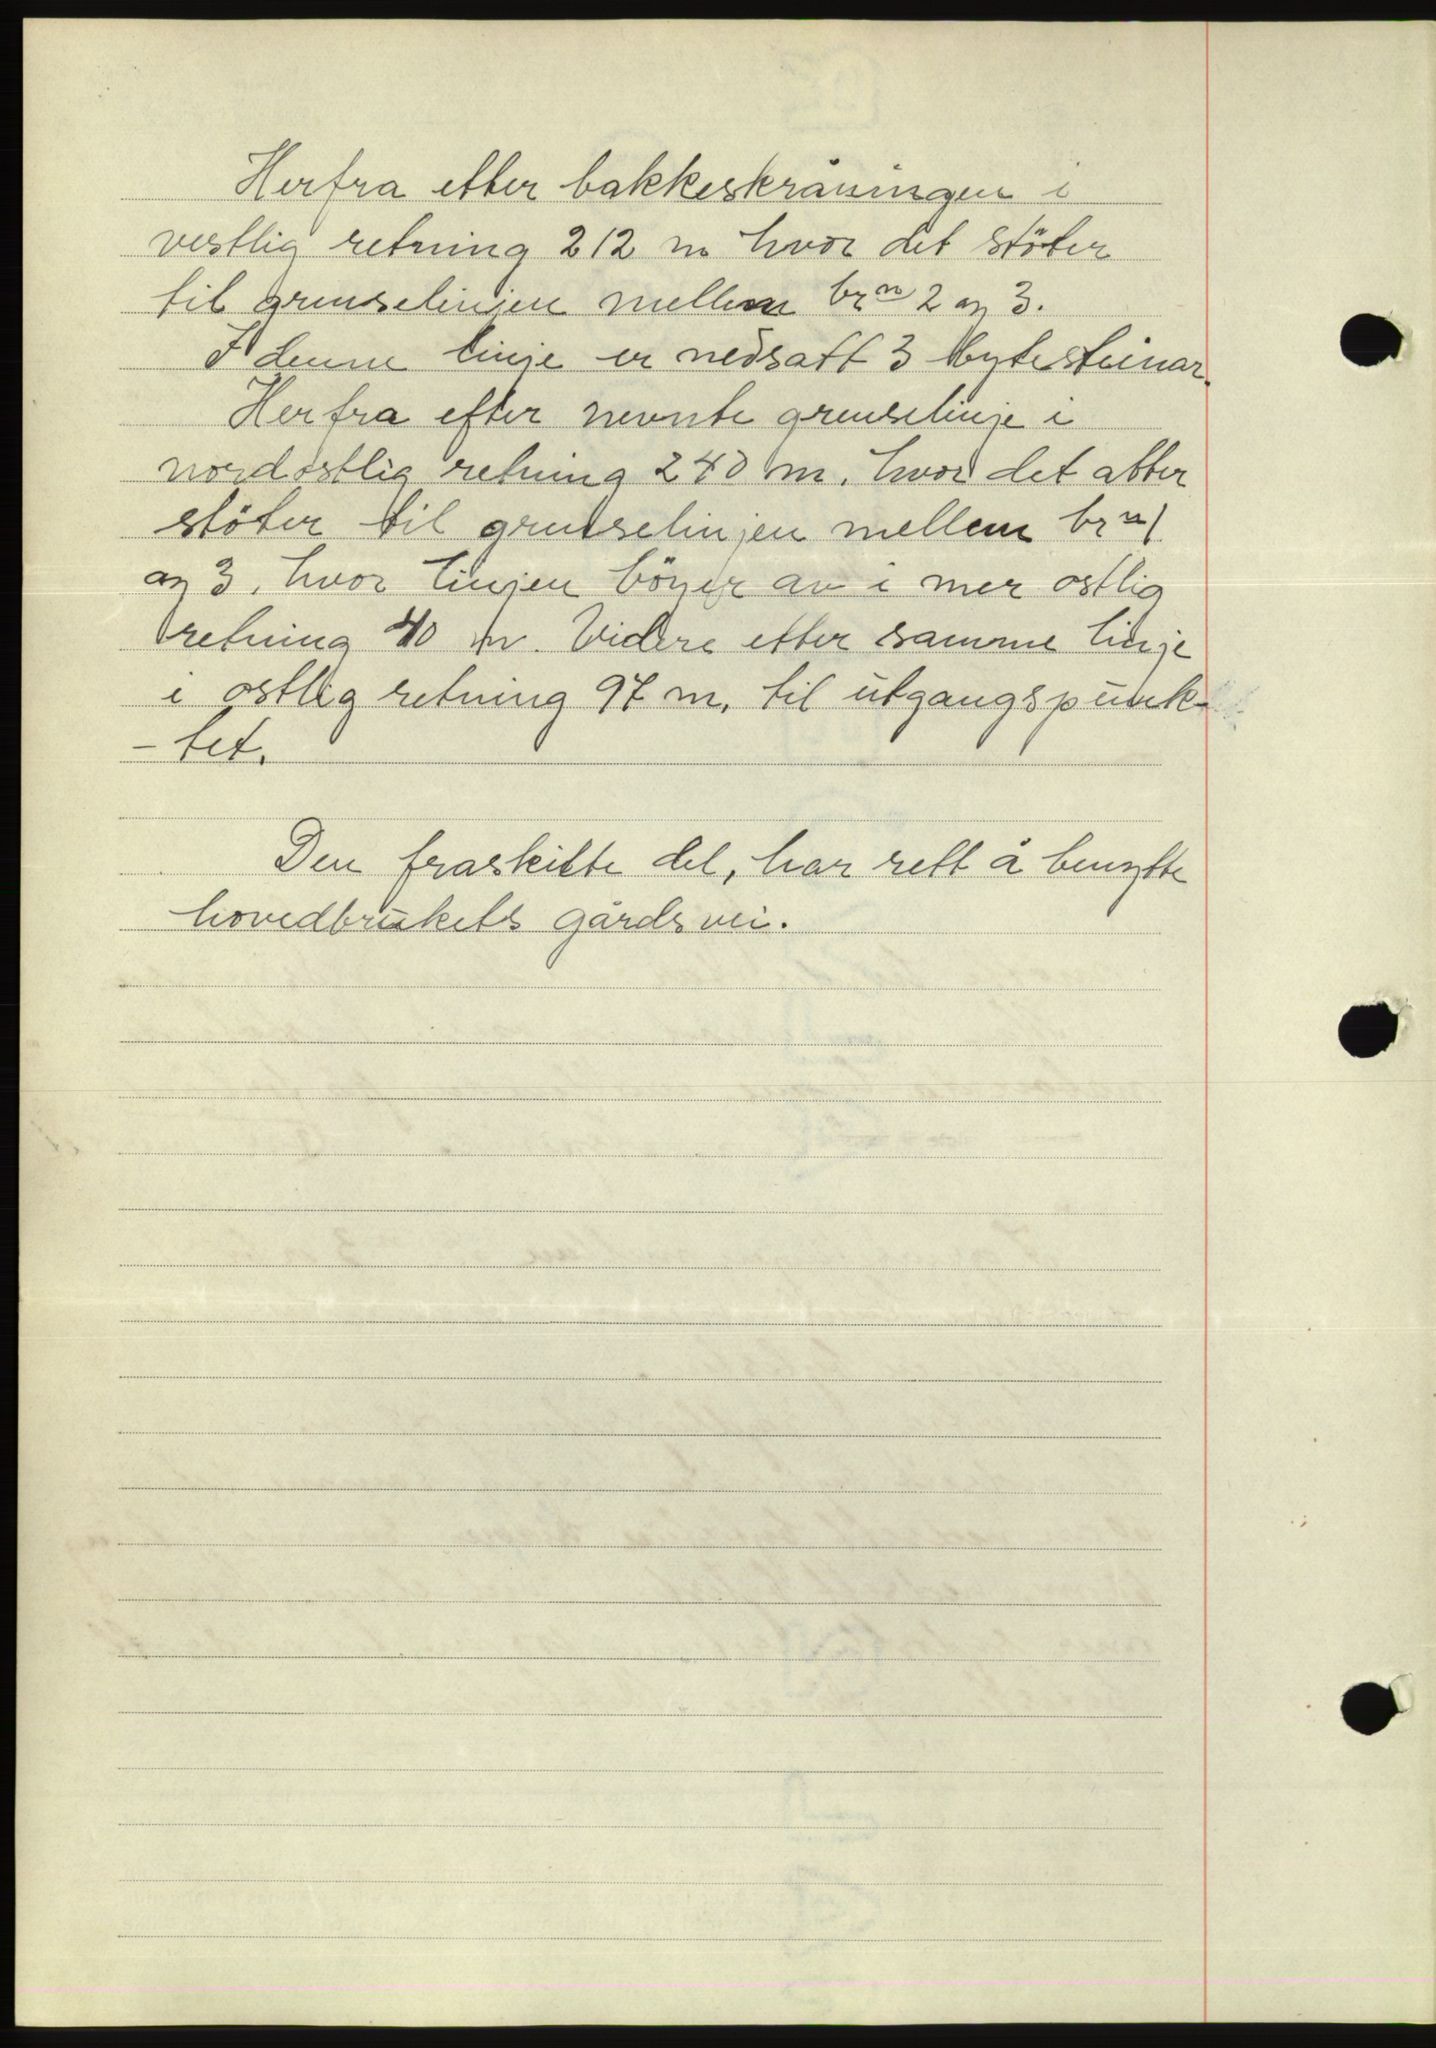 Herfra etter bakkeskråningen i
vestlig retning 212 m hvor det støter
til grenselinjen mellem brn 2 og 3.
I denne linje er nedsatt 3 bytesteinar.
Herfra efter nevnte grenselinje i
nordostlig retning 240 m. hvor det atter
støter til grenselinjen mellem brn 1
og 3, hvor linjen böyer av i mer ostlig
retning 40 m. Videre etter samme linje
i ostlig retning 97 m. til utgangspunk-
- tet.
Den fraskilte del, har rett å benytte
hovedbrukets gårdsvei.